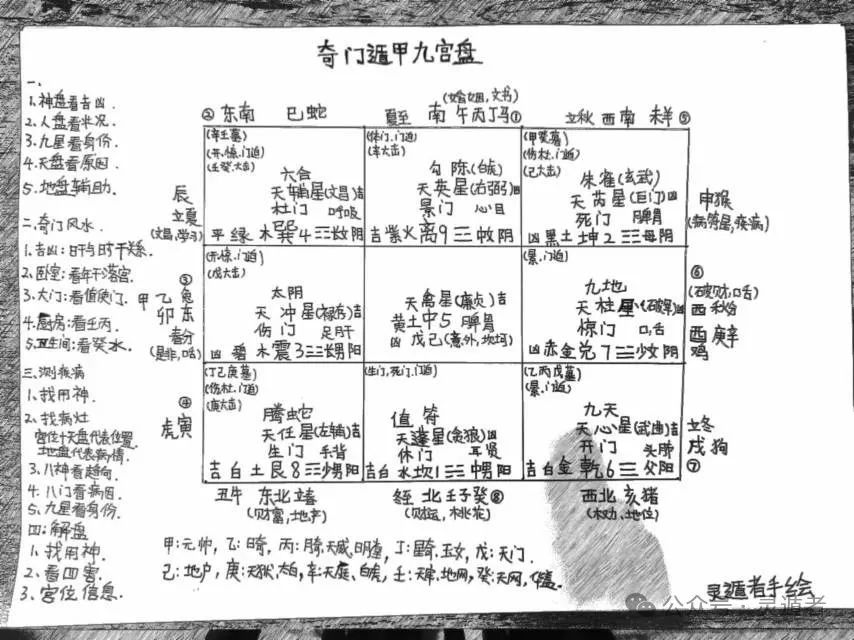 奇门遁甲九宫盘
一、
1.神盘看吉凶.
2.人盘看状况.
3.九星看身份.
4.天盘看原因.
5.地盘辅助.
二、奇门风水.
1.吉凶:日干与时干关系.
2.卧室:看年干落宫.
3.大门:看值使门.
4.厨房:看壬丙.
5.卫生间:看癸水.
三.测疾病
1.找用神.
2.找病灶
宫位十天盘代表位置.
地盘代表病情.
3.八神看趋向.
4.八门看病因.
5.九星看身份.
四:解盘
1.找用神.
2.看四害.
3.宫位信息.
② 东南 巳蛇
(婚姻,文书)
夏至 南 午丙丁马①
立秋 西南 未羊⑤
辰
立夏
(文昌,学习)
(辛壬墓)
(开,惊,门迫)
(壬癸,击)
六合
天辅星(文昌)吉
杜门 呼吸
平 绿 木 巽4☴长女阴
(休门,门迫)
(辛击)
勾陈(白虎)
天英星(右弼)凶
景门 心目
吉紫火离9☲中女阴
(甲癸墓)
(伤杜,门迫)
(己击)
朱雀(玄武)
天芮星(巨门)凶
死门 脾胃
凶黑土坤2☷母阴
申猴
(病符星,疾病)
③
甲乙兔
卯东
春分
(是非,口舌)
(开,惊,门迫)
(戊击)
太阴
天冲星(禄存)吉
伤门 足肝
凶 碧 木震3☳长男阳
天禽星(廉贞)吉
黄土中5 脾胃
凶 戊己(意外,坎坷)
(景,门迫)
九地
天柱星(破军)凶
惊门 口舌
凶赤金兑7☱少女阴
⑥
(破财,口舌)
西 秋分
酉庚辛
鸡
④
虎寅
(丁己庚墓)
(伤杜,门迫)
(庚击)
腾蛇
天任星(左辅)吉
生门 手背
吉白土艮8☶少男阳
(生门,死门,门迫)
值符
天蓬星(贪狼)凶
休门 耳肾
吉白水坎1☵中男阳
(乙丙戊墓)
(景,门迫)
九天
天心星(武曲)吉
开门 头肺
吉白金 乾6☰父阳
立冬
戌狗
⑦
丑牛 东北 立春
(财富,地产)
冬至 北 壬子癸⑧
(财运,桃花)
西北 亥猪
(权力、地位)
甲:元帅,乙:日奇,丙:月奇,天威,明堂,丁:星奇,玉女,戊:天门.
己:地户,庚:天狱,太白,辛:天庭,白虎,壬:天牢,地网,癸:天网,华盖.
灵遁者手绘
公众号·灵遁者